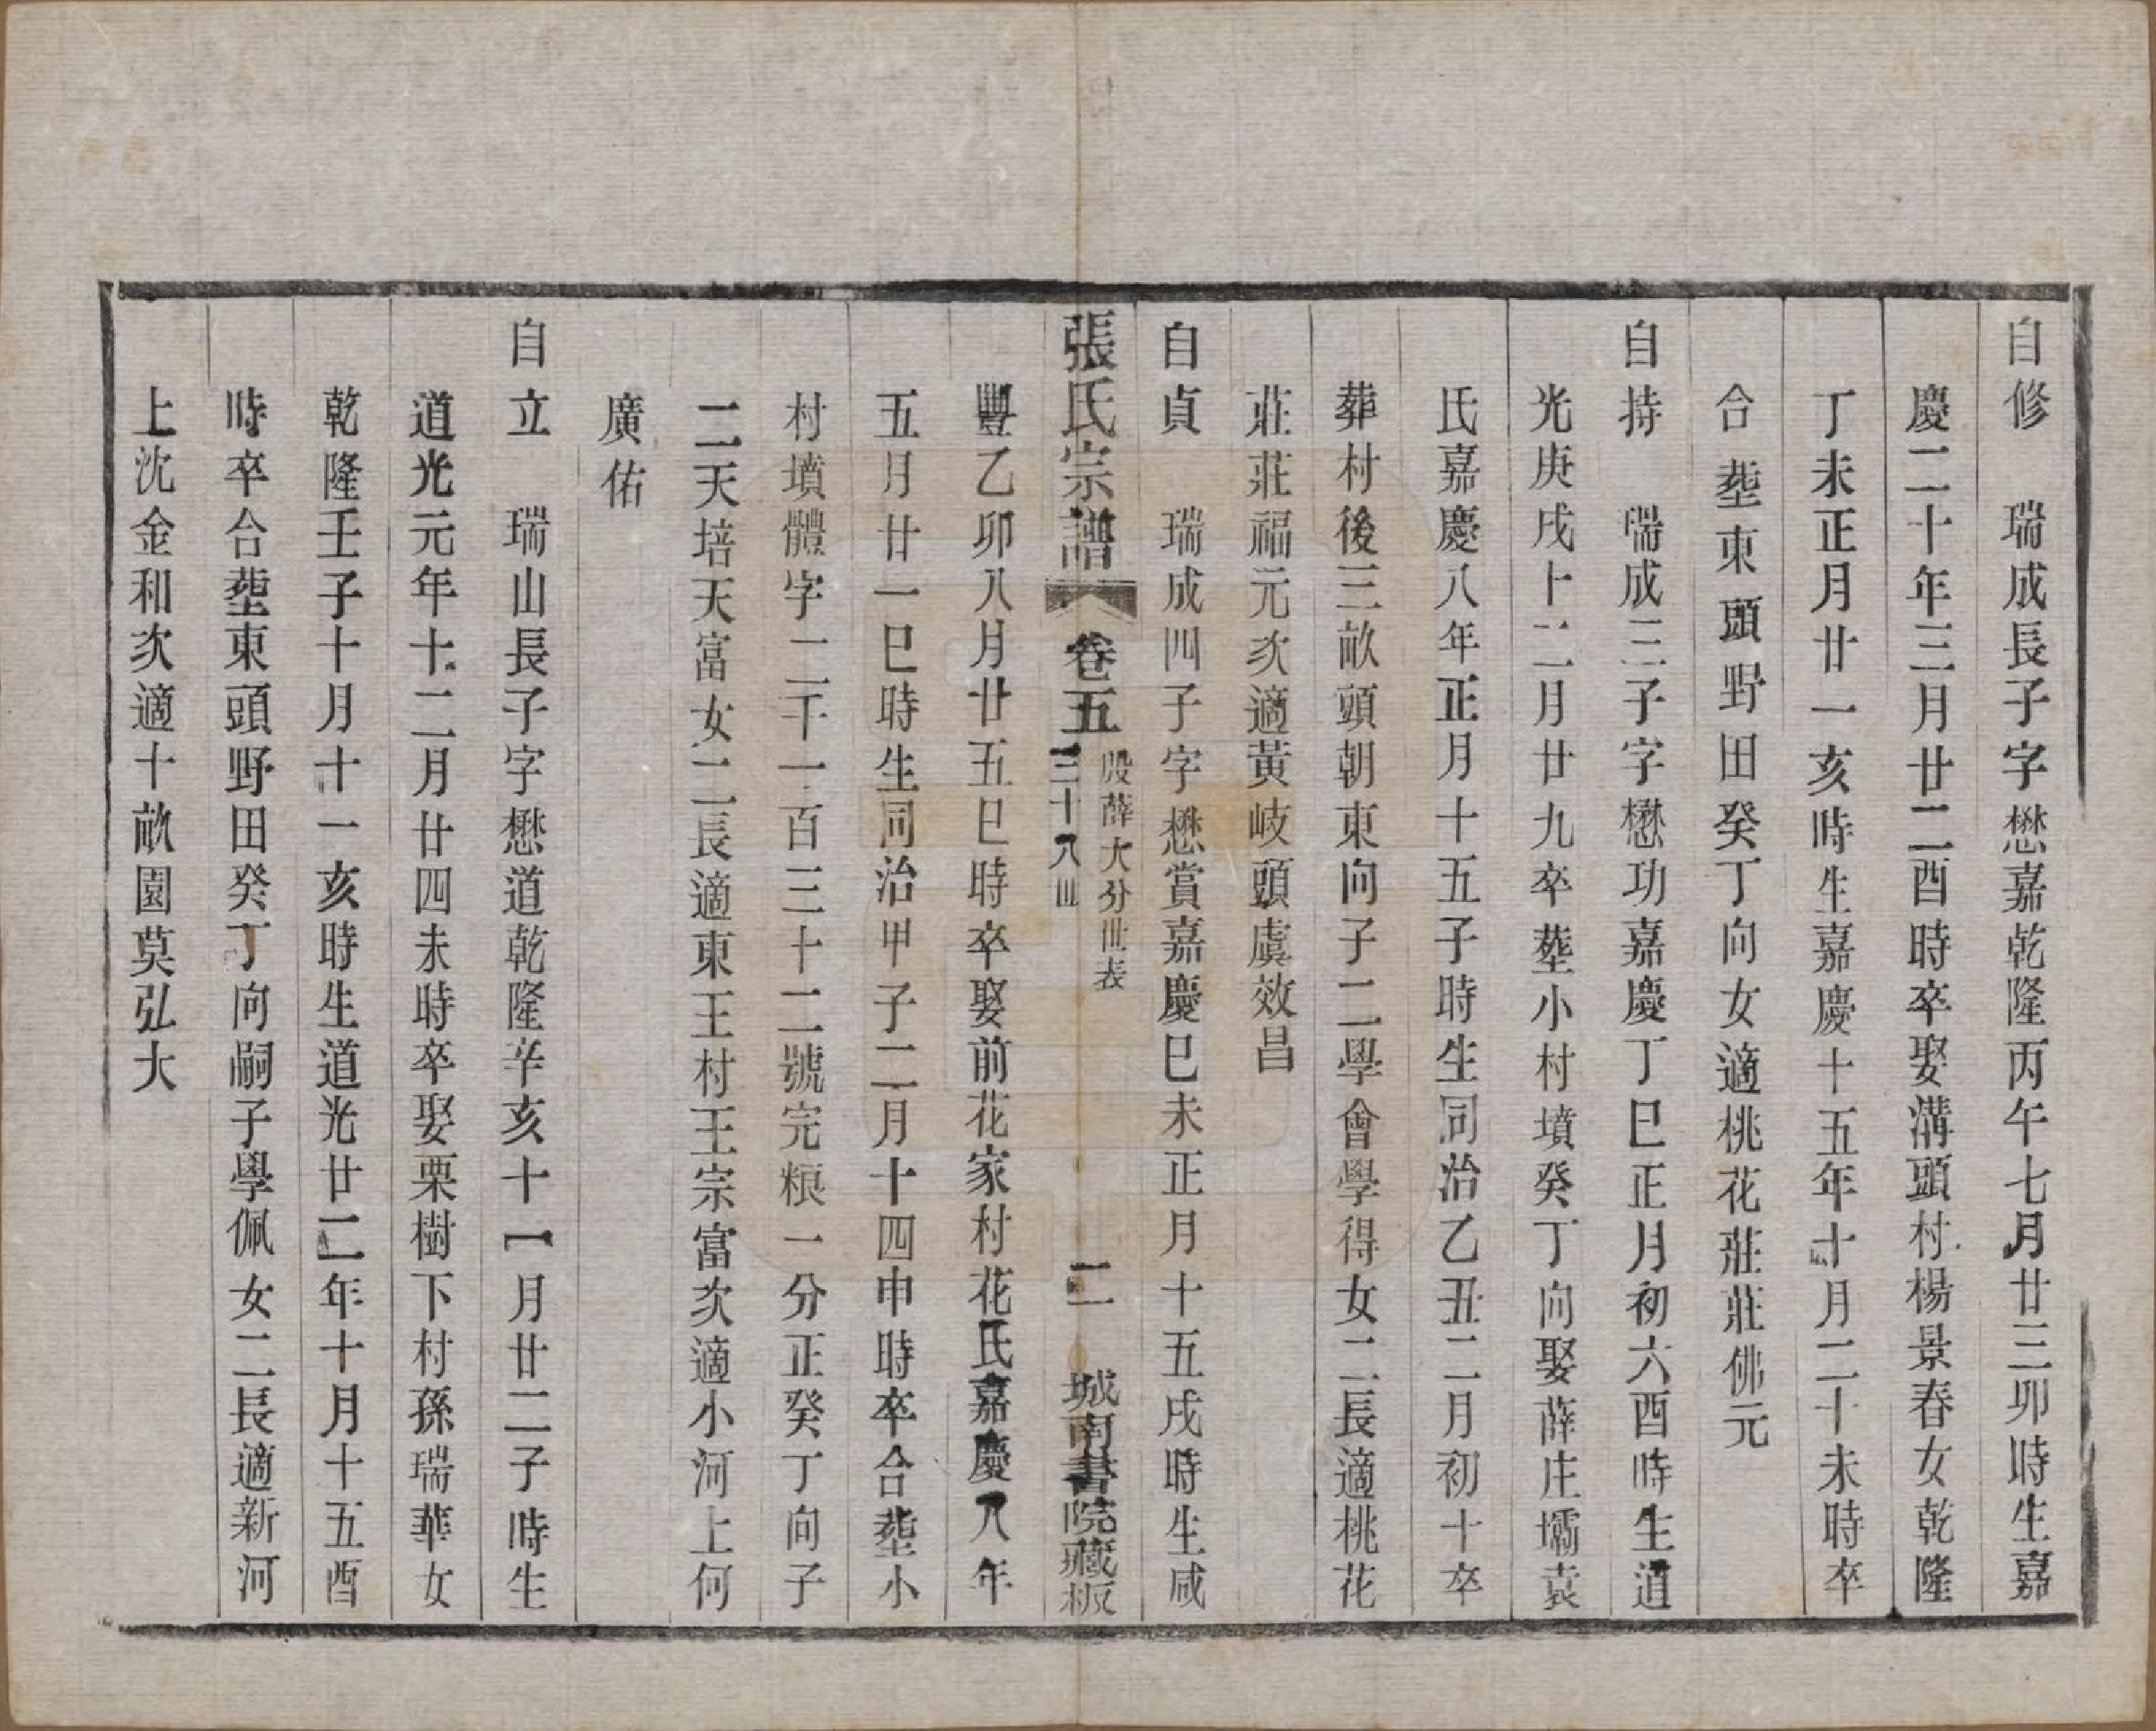 自修　瑞成長子字懋嘉乾隆丙午七月廿三卯時生嘉
慶二十年三月廿二酉時卒娶溝頭村楊景春女乾隆
丁未正月廿一亥時生嘉慶十五年十月二十未時卒
合塟東頭野田癸丁向女適桃花莊莊佛元
自持　瑞成三子字懋功嘉慶丁巳正月初六酉時生道
光庚戌十二月廿九卒塟小村墳癸丁向娶薛庄壩袁
氏嘉慶八年正月十五子時生同治乙丑二月初十卒
葬村後三畝頭朝東向子二學會學得女二長適桃花
莊莊福元次適黃岐頭虞效昌
自貞　瑞成四子字懋賞嘉慶巳未正月十五戌時生咸
張氏宗譜　卷五　殷薛大分世表　三十八世　二　城南書院藏板
豐乙卯八月廿五巳時卒娶前花家村花氏嘉慶八年
五月廿一巳時生同治甲子二月十四申時卒合塟小
村墳體字二千一百三十二號完粮一分正癸丁向子
二天培天富女二長適東王村王宗富次適小河上何
廣佑
自立　瑞山長子字懋道乾隆辛亥十一月廿二子時生
道光元年十二月廿四未時卒娶栗樹下村孫瑞華女
乾隆壬子十月十一亥時生道光廿二年十月十五酉
時卒合塟東頭野田癸丁向嗣子學佩女二長適新河
上沈金和次適十畝園莫弘大